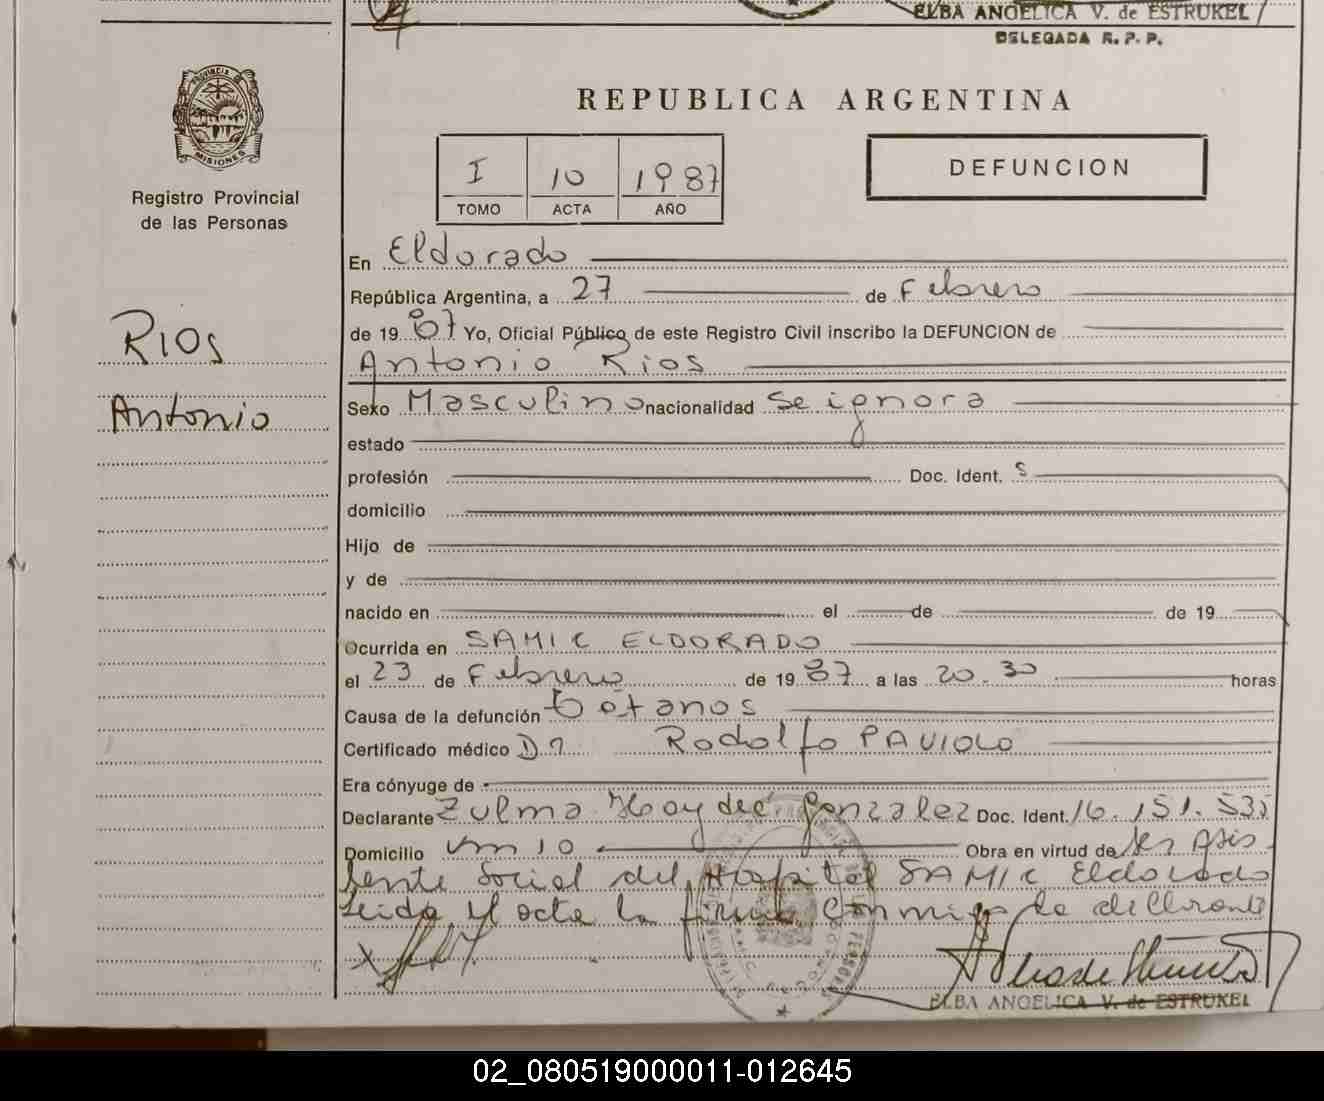 ELBA ANGELICA V. de ESTRUKEL
DELEGADA R. P. P.
PROVINCIA DE
MISIONES
Registro Provincial
de las Personas
RIOS
Antonio
REPUBLICA ARGENTINA
I 10 1987
TOMO ACTA AÑO
DEFUNCION
En Eldorado
República Argentina, a 27 de Febrero
de 19 87 Yo, Oficial Público de este Registro Civil inscribo la DEFUNCION de
Antonio Rios
Sexo Masculino nacionalidad se ignora
estado
profesión Doc. Ident. S
domicilio
Hijo de
y de
nacido en el de de 19
Ocurrida en SAMIC ELDORADO
el 23 de Febrero de 19 87 a las 20.30 horas
Causa de la defunción tétanos
Certificado médico Dr Rodolfo PAVIOLO
Era cónyuge de
Declarante Zulma Haydeé Gonzalez Doc. Ident. 16.151.535
Domicilio Km 10 Obra en virtud de ser Asis
tente Social del Hospital SAMIC Eldorado
Leida el acta la firma conmigo la declarante
ELBA ANGELICA V. de ESTRUKEL
02_080519000011-012645